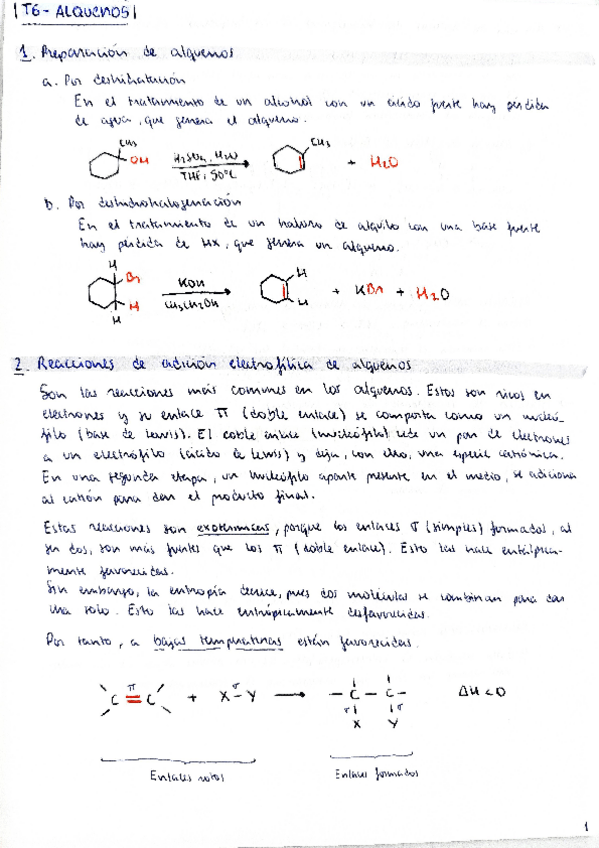 T6 - ALQUENOS
1. Preparación de alquenos
a. Por deshidratación
En el tratamiento de un alcohol con un ácido fuerte hay pérdida
de agua, que genera el alqueno.
CH3 OH H2SO4, H2O THF, 50°C CH3 + H2O
b. Por deshidrohalogenación
En el tratamiento de un haluro de alquilo con una base fuerte
hay pérdida de HX, que genera un alqueno.
H Br H H KOH CH3CH2OH H H + KBr + H2O
2. Reacciones de adición electrofílica de alquenos
Son las reacciones más comunes en los alquenos. Estos son ricos en
electrones y su enlace π (doble enlace) se comporta como un nucleó-
filo (base de Lewis). El doble enlace (nucleófilo) cede un par de electrones
a un electrófilo (ácido de Lewis) y deja, con ello, una especie catiónica.
En una segunda etapa, un nucleófilo aparte presente en el medio, se adiciona
al catión para dar el producto final.
Estas reacciones son exotérmicas, porque los enlaces σ (simples) formados, al
ser dos, son más fuertes que los π (doble enlace). Esto las hace entálpica-
mente favorecidas.
Sin embargo, la entropía decrece, pues dos moléculas se combinan para dar
una solo. Esto las hace entrópicamente desfavorecidas.
Por tanto, a bajas temperaturas están favorecidas.
C π C + X σ Y → - C - C - ΔH < 0
σ σ
X Y
Enlaces rotos Enlaces formados
1